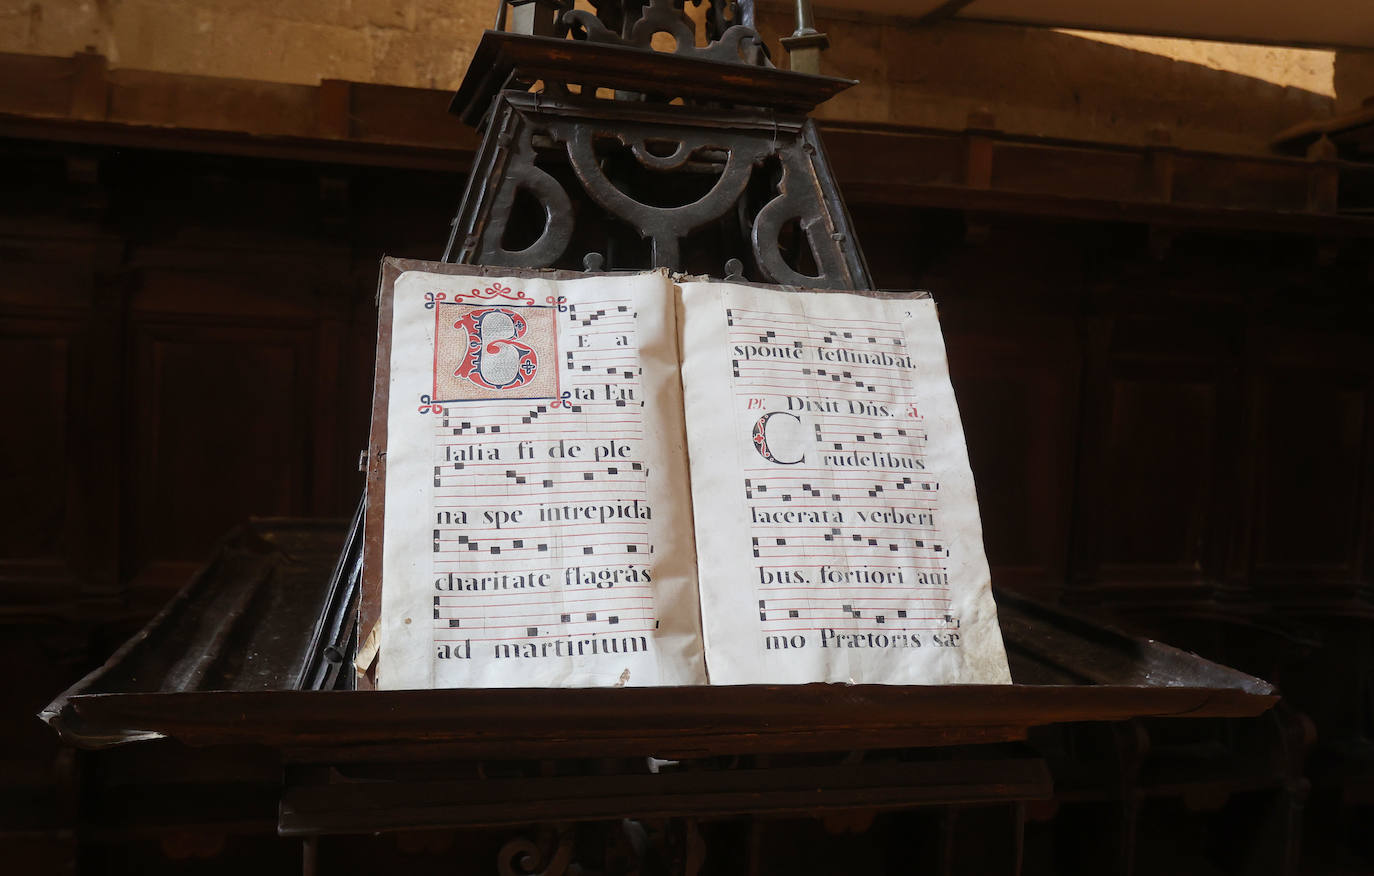 B
E a
ta Eu
lalia fi de ple
na spe intrepida
charitate flagrás
ad martirium
2
sponte festinabat.
Ps. Dixit Dñs. à.
Crudelibus
lacerata verberi
bus, fortiori ani
mo Prætoris sæ